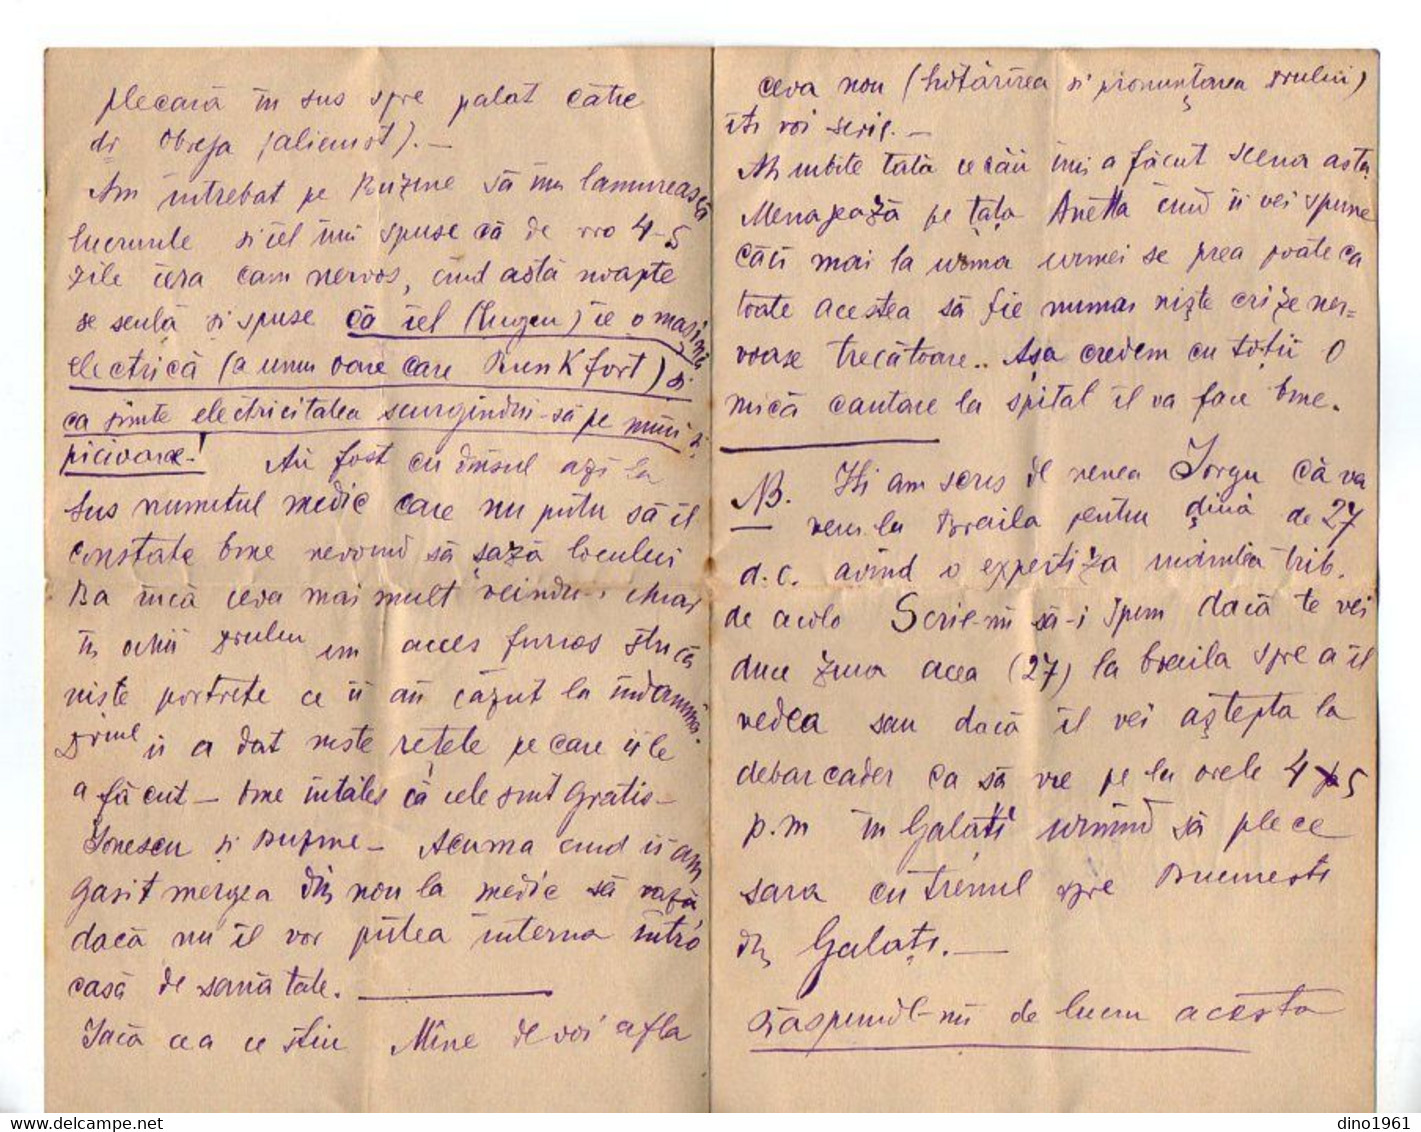 plecară în sus spre palat către
dr Obreja (alienist). —
Am intrebat pe Buzne să'mi lamurească
lucrurile și iel îmi spuse că de vro 4-5
zile iera cam nervos, cînd astă noapte
se sculă și spuse că iel (Eugen) ie o mașină
electrică (a unui oare care Runkfort) și
ca simte electricitatea scurgîndu-să pe mîini și
picioare! Au fost cu dînsul azi la
sus numitul medic care nu putu să îl
constate bine nevoind să șază locului
Ba încă ceva mai mult chiar
în ochii drului un acces furios strică
niște portrete ce ii au căzut la indamină.
Drul ii a dat niste rețete pe care ii le
a făcut — bine înțăles că iele sînt gratis —
Ionescu și Buzne — Acuma cînd ii am
gasit mergea din nou la medic să vază
dacă nu îl vor putea interna intr'o
casă de sanătate. —
Iacă cea ce știu Mîne de voi afla
ceva nou (hotărîrea și pronunțarea drului)
iți voi scrie. —
Ah iubite tată ce rău imi a făcut scena asta
Menajează pe țața Anetta cînd ii vei spune
căci mai la urma urmei se prea poate ca
toate acestea să fie numai niște crize ner=
voase trecătoare.. Așa credem cu toții O
mică cautare la spital îl va face bine.
NB. Iți am scris de nenea Iorgu că va
veni la Braila pentru ziua de 27
d.c. avînd o expertiza inaintea trib.
de acolo Scrie-mi să-i spun dacă te vei
duce ziua acea (27) la braila spre a îl
vedea sau dacă îl vei aștepta la
debarcader ca să vie pe la orele 4-5
p.m în Galați urmînd să plece
sara cu trenul spre Bucuresti
din Galați. —
Răspunde-mi de lucru acesta
dino1961